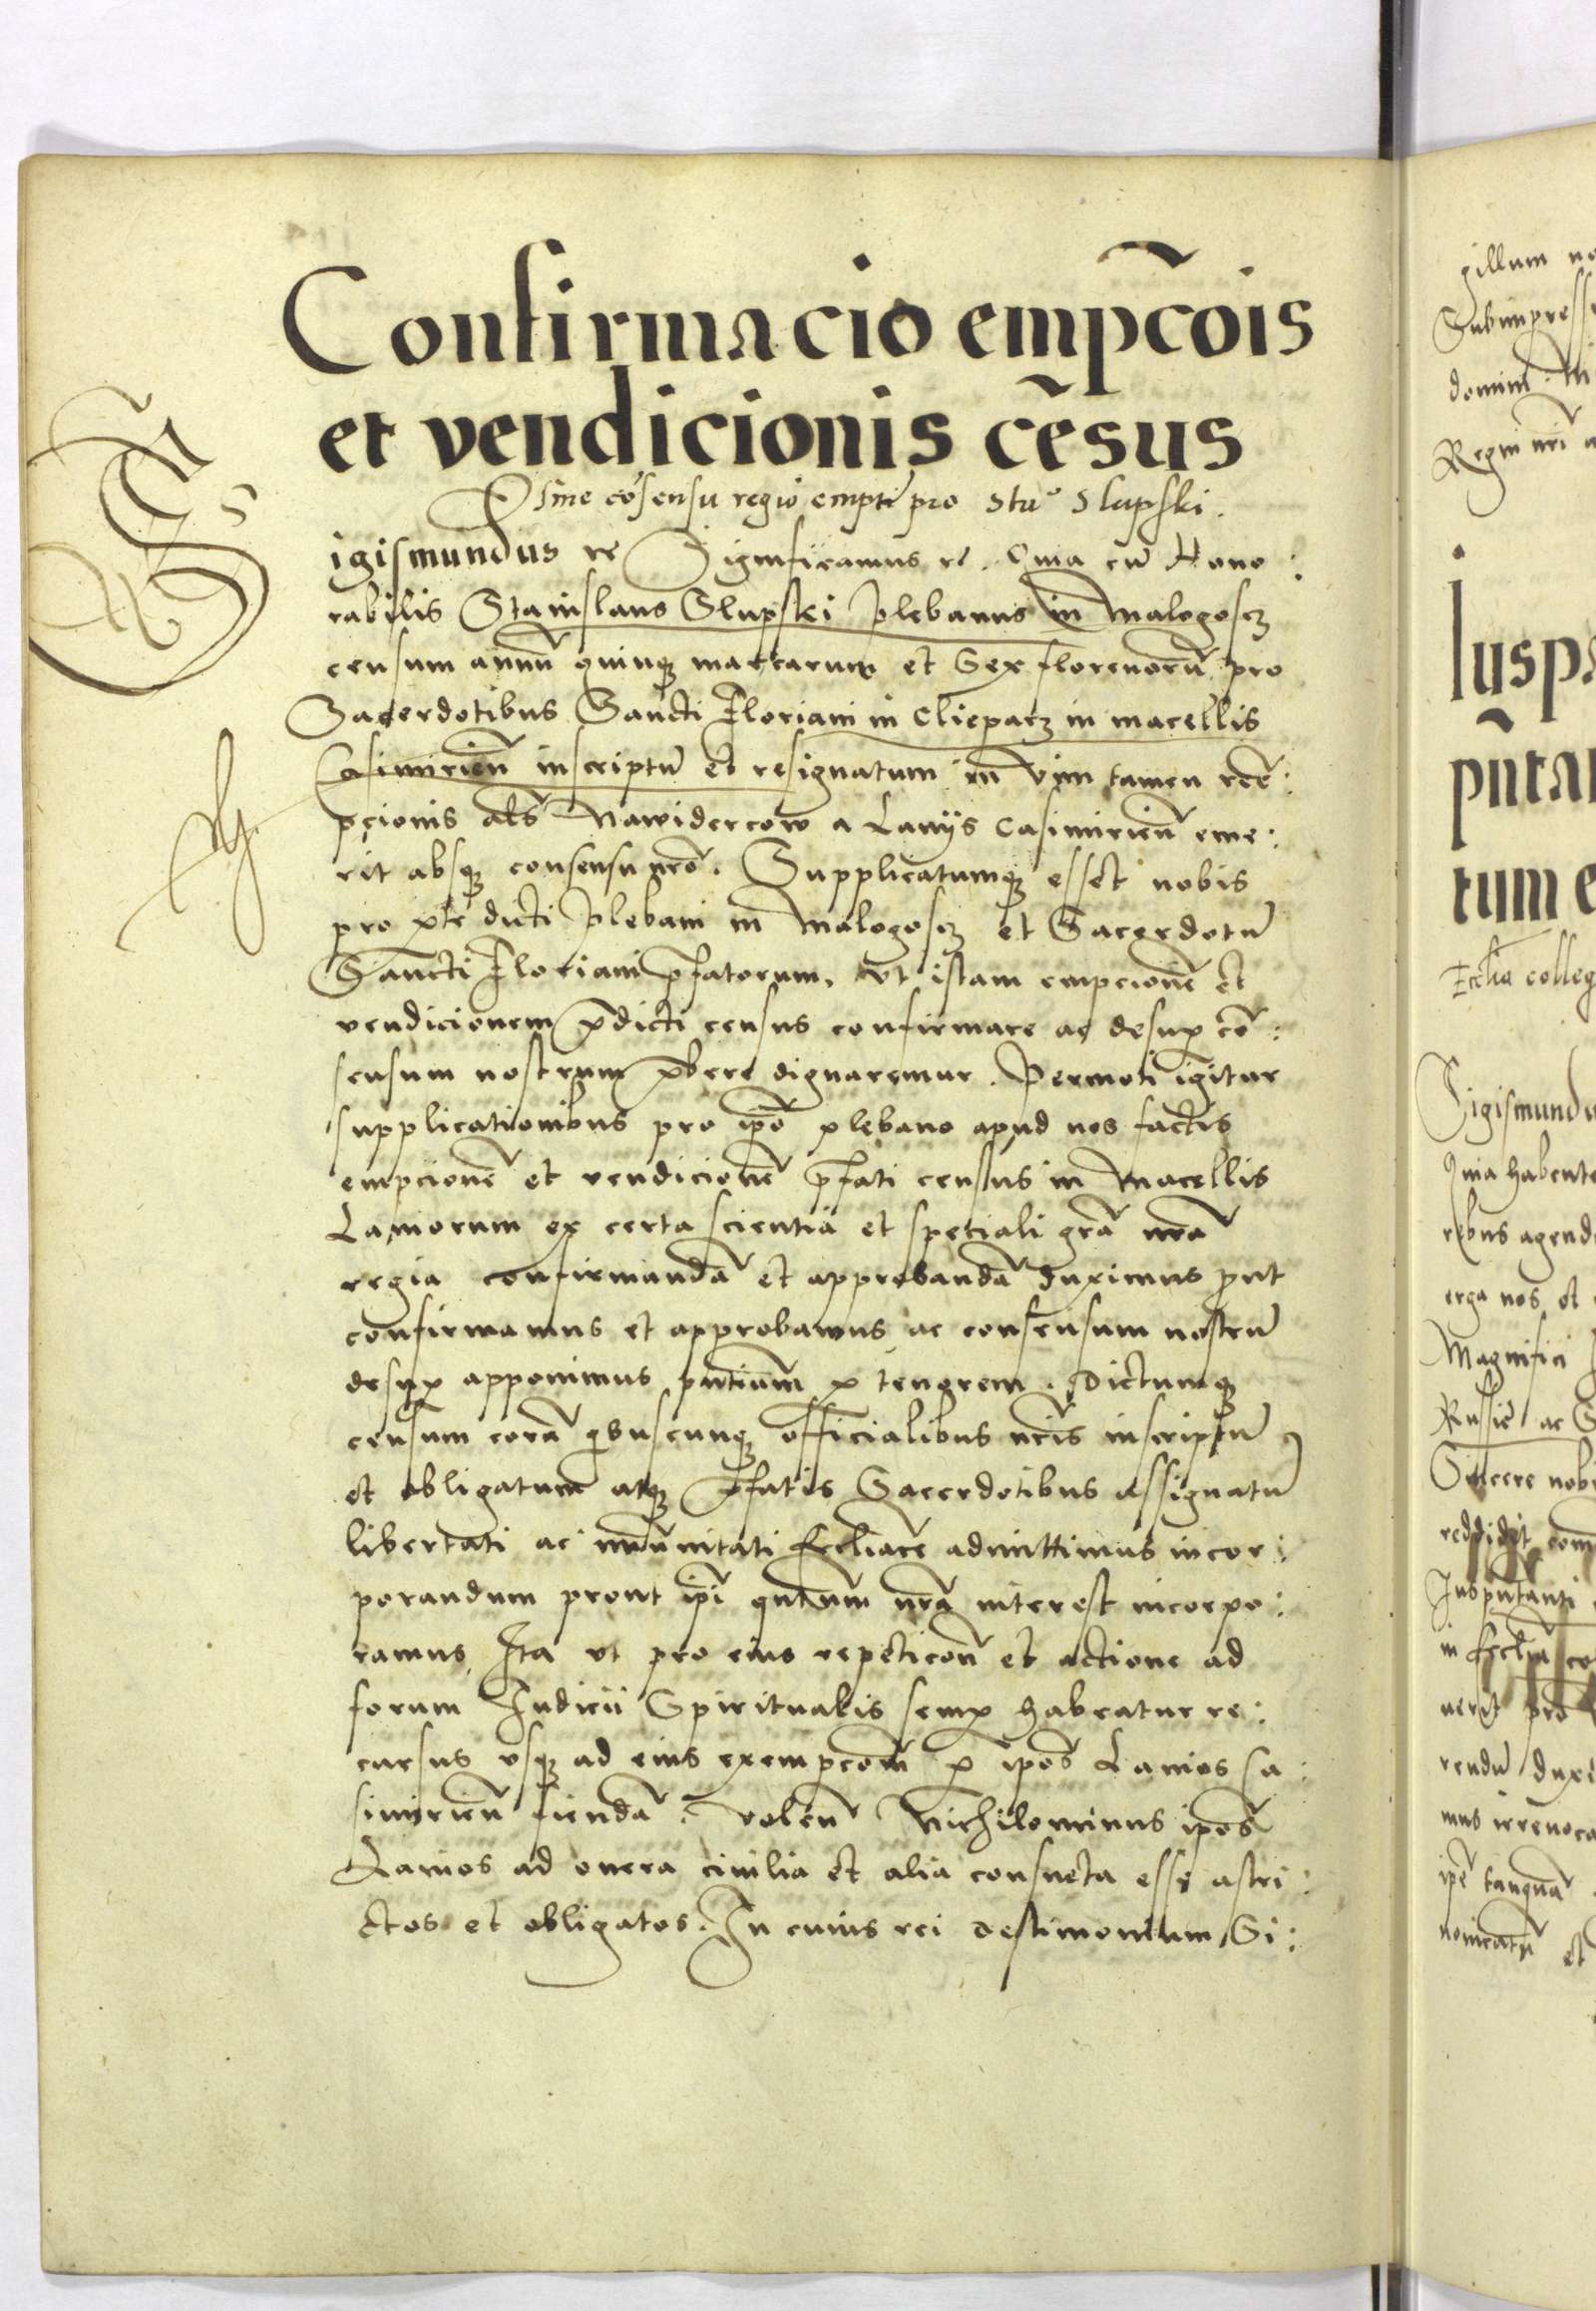 Confirmacio emp̄cõis
et vendicionis cẽsus
sine cõsensu regio empti pro Sta° Slupski.
Sigismundus rc Significamus rc. Quia cũ Hono:
rabilis Stanislaus Slupski plebanus in Malogoscz
censum annuũ quinqȝ marcarum et Sex florenorũ pro
Sacerdotibus Sancti Floriani in Clieparz in macellis
Casimirieñ inscriptũ et resignatum in vim tamen reẽ:
pcionis als̃ Nawidercow a Laniis Casimirieñ eme:
rit absqȝ consensu nr̃o. Supplicatumqȝ esset nobis
pro pte dicti plebani in Malogoscz et Sacerdotũ
Sancti Floriani p̃fatorum, vt istam empcionẽ et
vendicionem p̃dicti census confirmare ac desuꝑ cõ:
sensum nostrum p̃bere dignaremur. Permoti igitur
supplicationibus pro ip̃o plebano apud nos factis
empcionẽ et vendicionẽ p̃fati census in Macellis
Laniorum ex certa scientia et speciali grã nrã
regia confirmandã et approbandã duximus put
confirmamus et approbamus ac consensum nostrũ
desuꝑ apponimus pñtium ꝑ tenorem. Dictumqȝ
censum corã qbuscunqȝ officialibus nr̃is inscriptũ
et obligatum atqȝ p̃fatis Sacerdotibus assignatũ
libertati ac immũnitati Eccliacẽ admittimus incor:
porandum prout ip̃i qntum nr̃a interest incorpo:
ramus, Ita vt pro eius repeticoñ et actione ad
forum Iudicii Spiritualis semꝑ habeatur re:
cursus vsqȝ ad eius exempcom̃ ꝑ ip̃os Lanios Ca:
simirieñ fiendã. voleñ Nichilominus ip̃os
Lanios ad onera ciuilia et alia consueta esse astri:
ctos et obligatos. In cuius rei testimonium Si:
gillum no
Subimpress
domini
Regni nr̃i
Iuspa
pñtat
tum e
Ecclia colleg
Sigismundu
Quia habente
rebus agend
erga nos et
Magnifici
Russie ac
Sincere nobi
reddidit com
Iuspñtanti
in Ecclia co
uerit pro
rendũ duxi
mus irreuoca
ip̃e tanquã
nonicatũ et